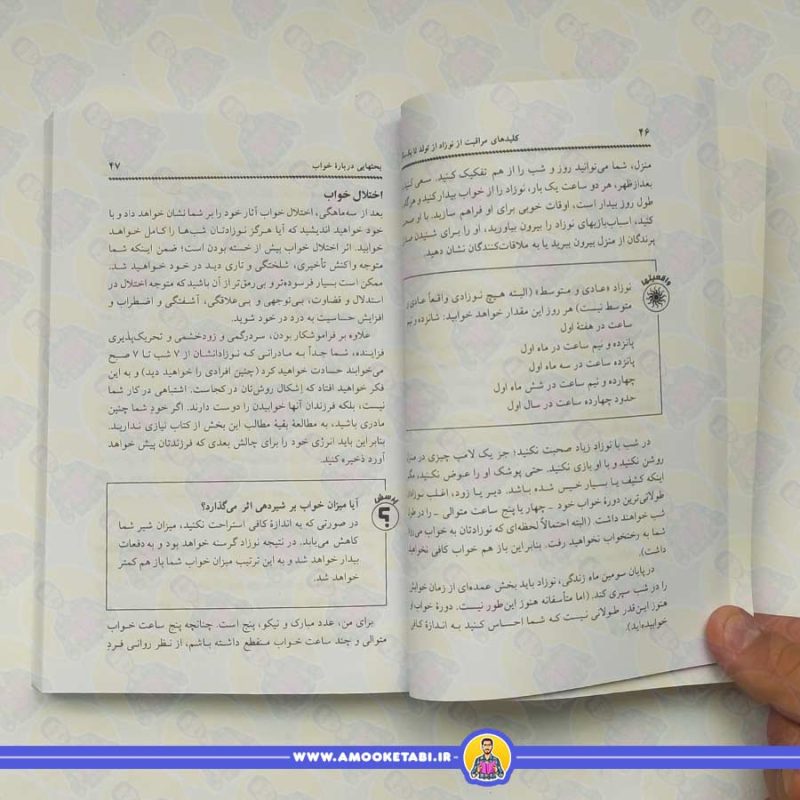 ۴۶
کلیدهای مراقبت از نوزاد از تولد تا یکسا
منزل، شما می‌توانید روز و شب را از هم تفکیک کنید. سعی کنید
بعدازظهر، هر دو ساعت یک بار، نوزاد را از خواب بیدار کنید و هرگاه
طول روز بیدار است، اوقات خوبی برای او فراهم سازید. با او صحبت
کنید، اسباب‌بازیهای نوزاد را بیرون بیاورید، او را برای شنیدن صدای
پرندگان از منزل بیرون ببرید یا به ملاقات‌کنندگان نشان دهید.
واقعیتها
نوزاد «عادی و متوسط» (البته هیچ نوزادی واقعاً عادی و
متوسط نیست) هر روز این مقدار خواهد خوابید: شانزده و نیم
ساعت در هفتهٔ اول
پانزده و نیم ساعت در ماه اول
پانزده ساعت در سه ماه اول
چهارده و نیم ساعت در شش ماه اول
حدود چهارده ساعت در سال اول
در شب با نوزاد زیاد صحبت نکنید؛ جز یک لامپ چیزی در منزل
روشن نکنید و با او بازی نکنید. حتی پوشک او را عوض نکنید، مگر
اینکه کثیف یا بسیار خیس شده باشد. دیر یا زود، اغلب نوزادان
طولانی‌ترین دورهٔ خواب خود - چهار یا پنج ساعت متوالی - را در طول
شب خواهند داشت. (البته احتمالاً لحظه‌ای که نوزادتان به خواب می‌رود
شما به رختخواب نخواهید رفت. بنابراین باز هم خواب کافی نخواهید
داشت).
در پایان سومین ماه زندگی، نوزاد باید بخش عمده‌ای از زمان خوابش
را در شب سپری کند. (اما متأسفانه هنوز این‌طور نیست. دورهٔ خواب او
هنوز این‌قدر طولانی نیست که شما احساس کنید به اندازهٔ کافی
خوابیده‌اید).
بحثهایی دربارهٔ خواب
۴۷
اختلال خواب
بعد از سه‌ماهگی، اختلال خواب آثار خود را بر شما نشان خواهد داد و با
خود خواهید اندیشید که آیا هرگز نوزادتان شب‌ها را کامل خواهد
خوابید. اثر اختلال خواب بیش از خسته بودن است؛ ضمن اینکه شما
متوجه واکنش تأخیری، شلختگی و تاری دید در خود خواهید شد.
ممکن است بسیار فرسوده‌تر و بی‌رمق‌تر از آن باشید که متوجه اختلال در
استدلال و قضاوت، بی‌توجهی و بی‌علاقگی، آشفتگی و اضطراب و
افزایش حساسیت به درد در خود شوید.
علاوه بر فراموشکار بودن، سردرگمی و زودخشمی و تحریک‌پذیری
فزاینده، شما جداً به مادرانی که نوزادانشان از ۷ شب تا ۷ صبح
می‌خوابند حسادت خواهید کرد (چنین افرادی را خواهید دید) و به این
فکر خواهید افتاد که اِشکال روش‌تان در کجاست. اشتباهی در کار شما
نیست، بلکه فرزندان آنها خوابیدن را دوست دارند. اگر خودِ شما چنین
مادری باشید، به مطالعهٔ بقیهٔ مطالب این بخش از کتاب نیازی ندارید.
بنابراین باید انرژی خود را برای چالش بعدی که فرزندتان پیش خواهد
آورد ذخیره کنید.
پرسش
آیا میزان خواب بر شیردهی اثر می‌گذارد؟
در صورتی که به اندازهٔ کافی استراحت نکنید، میزان شیر شما
کاهش می‌یابد. در نتیجه نوزاد گرسنه خواهد بود و به‌دفعات
بیدار خواهد شد و به این ترتیب میزان خواب شما باز هم کمتر
خواهد شد.
برای من، عدد مبارک و نیکو، پنج است. چنانچه پنج ساعت خواب
متوالی و چند ساعت خواب منقطع داشته باشم، از نظر روانی فردِ
WWW.AMOOKETABI.IR